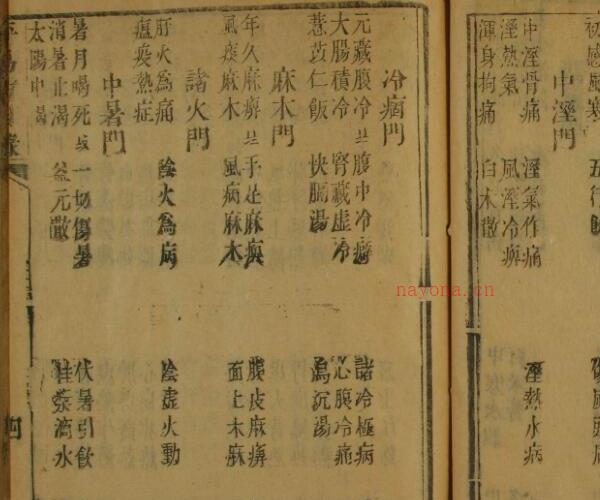 初感風寒
中溼門
中溼骨痛 溼氣作痛
溼熱氣 風溼冷痹 溼熱水病
渾身拘痛 白木散
冷病門
元藏腹冷 共 腹中冷癖 諸冷極病
大腸積冷 腎藏虛冷 心腹冷痛
薏苡仁飯 快膈湯 烏沉湯
麻木門
年久麻痹 共 手足麻痪 腹皮麻痹
風痰麻木 風病麻木 面上木麻
諸火門
肝火為痛 陰火為病 陰虛火動
瘟疫熱症
中暑門
暑月暍死 一切傷暑 伏暑引飲
消暑止渴 益元散 桂苓滴水
太陽中暍
nayona.cn